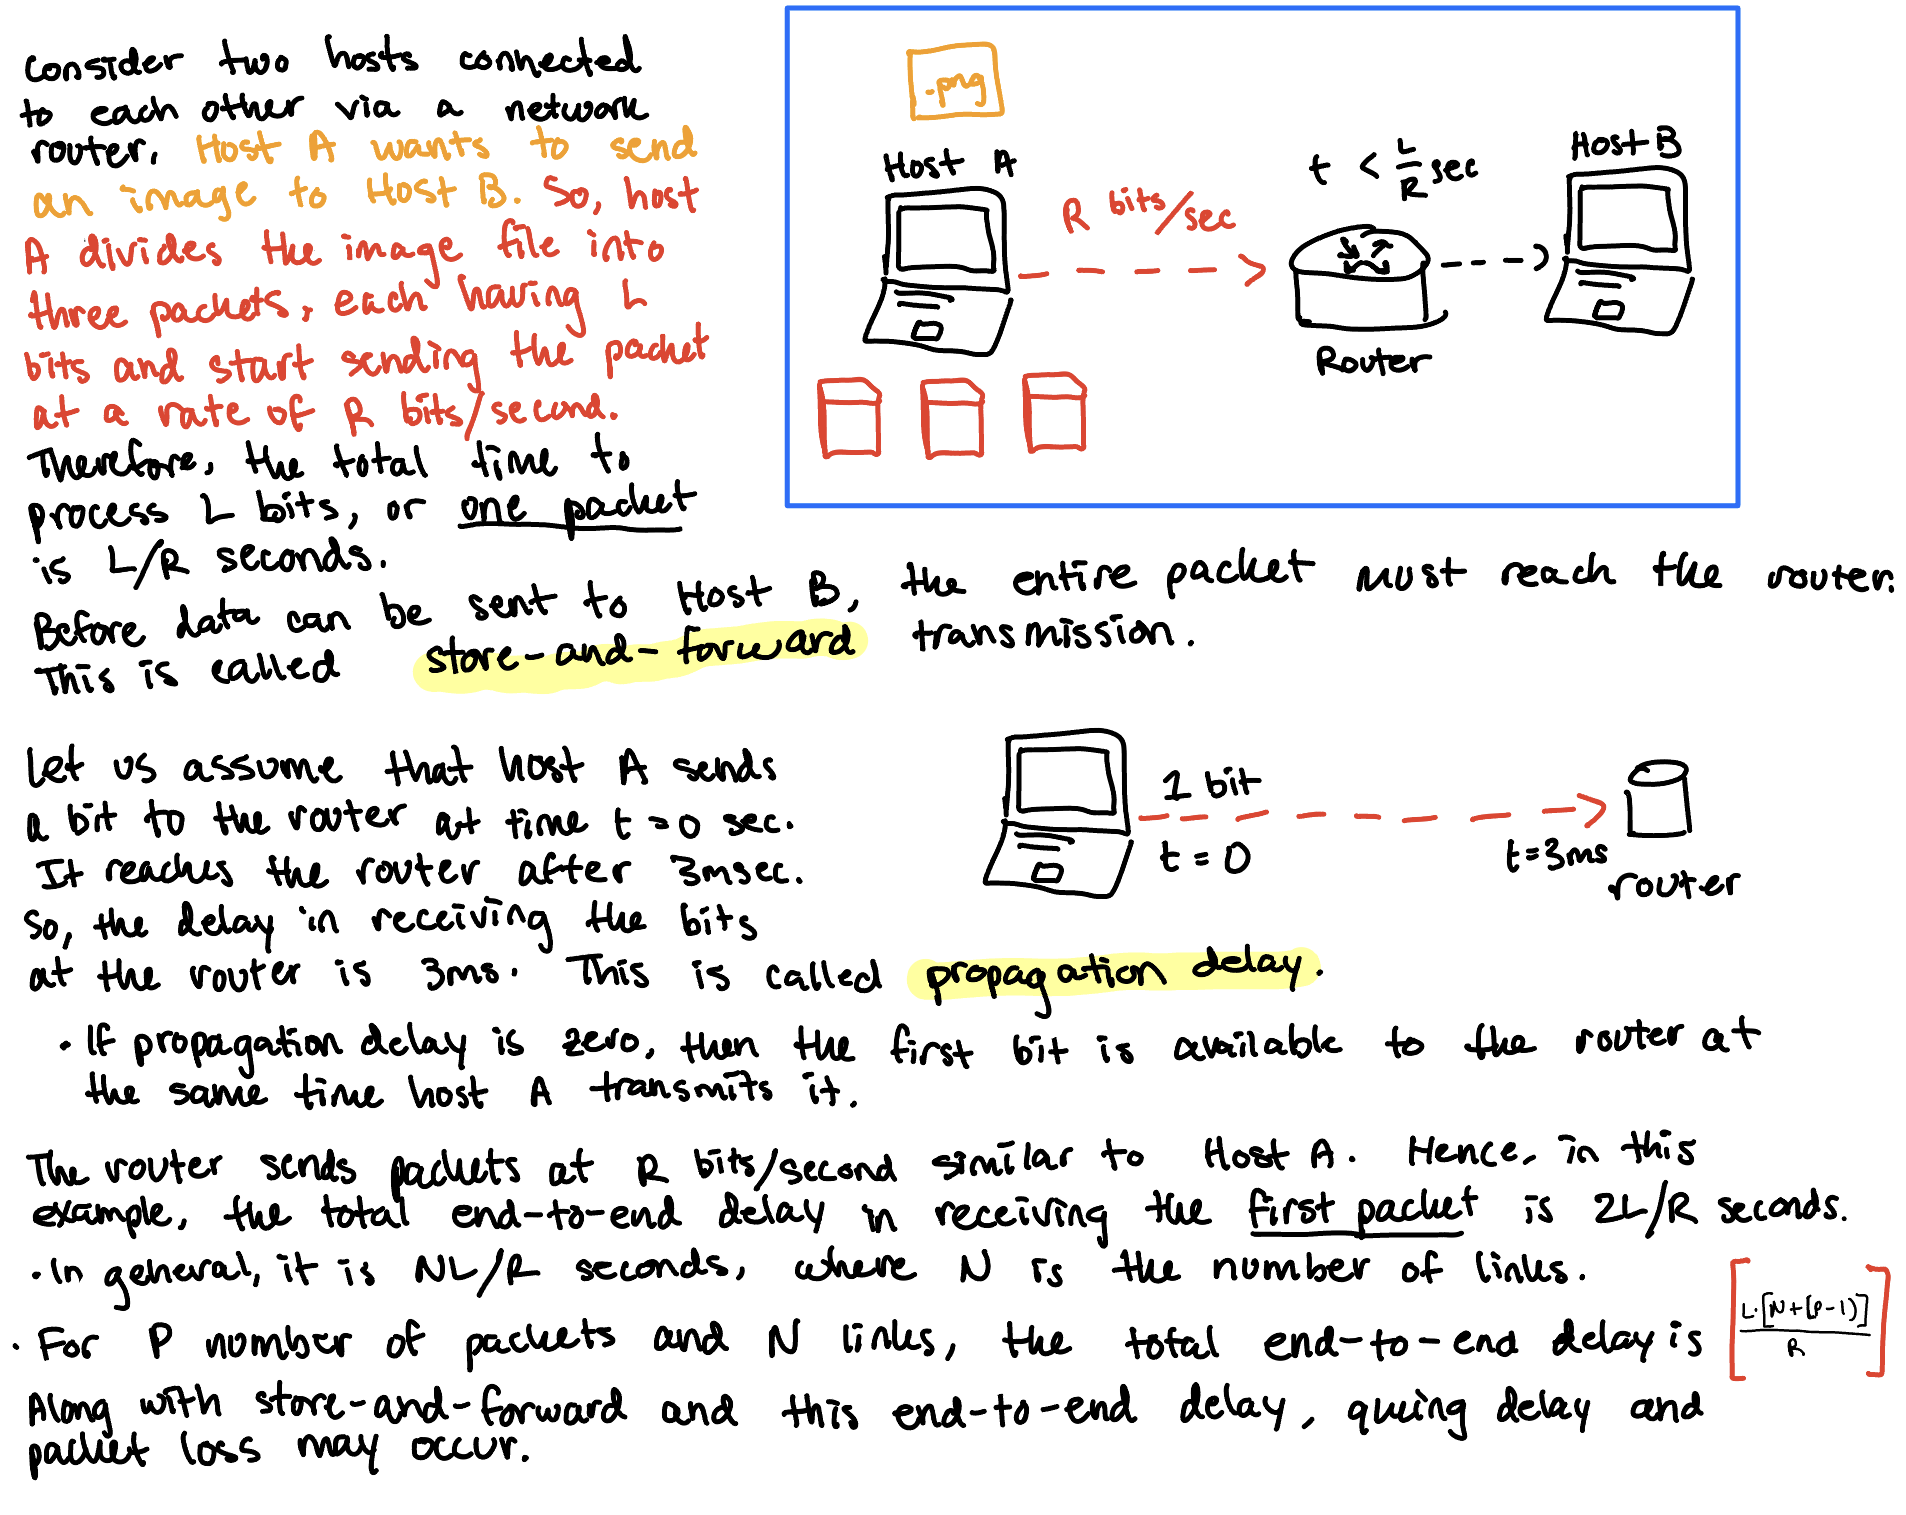 consider two hosts connected
to each other via a network
router. Host A wants to send
an image to Host B. So, host
A divides the image file into
three packets, each having L
bits and start sending the packet
at a rate of R bits/second.
Therefore, the total time to
process L bits, or one packet
is L/R seconds.
Before data can be sent to Host B, the entire packet must reach the router.
This is called store-and-forward transmission.
.png
Host A
R bits/sec
t < L/R sec
Host B
Router
Let us assume that host A sends
a bit to the router at time t=0 sec.
It reaches the router after 3msec.
So, the delay in receiving the bits
at the router is 3ms. This is called propagation delay.
1 bit
t = 0
t=3ms
router
• If propagation delay is zero, then the first bit is available to the router at
the same time host A transmits it.
The router sends packets at R bits/second similar to Host A. Hence, in this
example, the total end-to-end delay in receiving the first packet is 2L/R seconds.
• In general, it is NL/R seconds, where N is the number of links.
• For P number of packets and N links, the total end-to-end delay is [L·[N+(P-1)]/R]
Along with store-and-forward and this end-to-end delay, quing delay and
packet loss may occur.